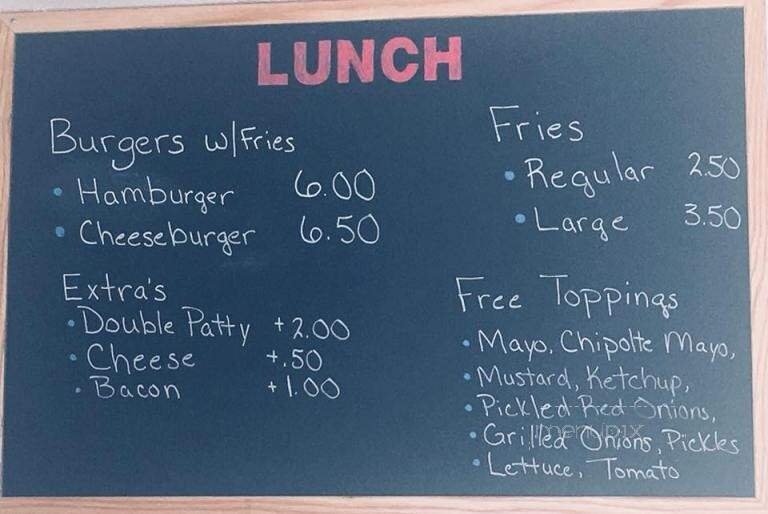 LUNCH
Burgers w/Fries
• Hamburger 6.00
• Cheeseburger 6.50
Extra's
• Double Patty +2.00
• Cheese +.50
• Bacon +1.00
Fries
• Regular 2.50
• Large 3.50
Free Toppings
• Mayo, Chipolte Mayo,
• Mustard, Ketchup,
• Pickled Red Onions,
• Grilled Onions, Pickles
• Lettuce, Tomato
menupix